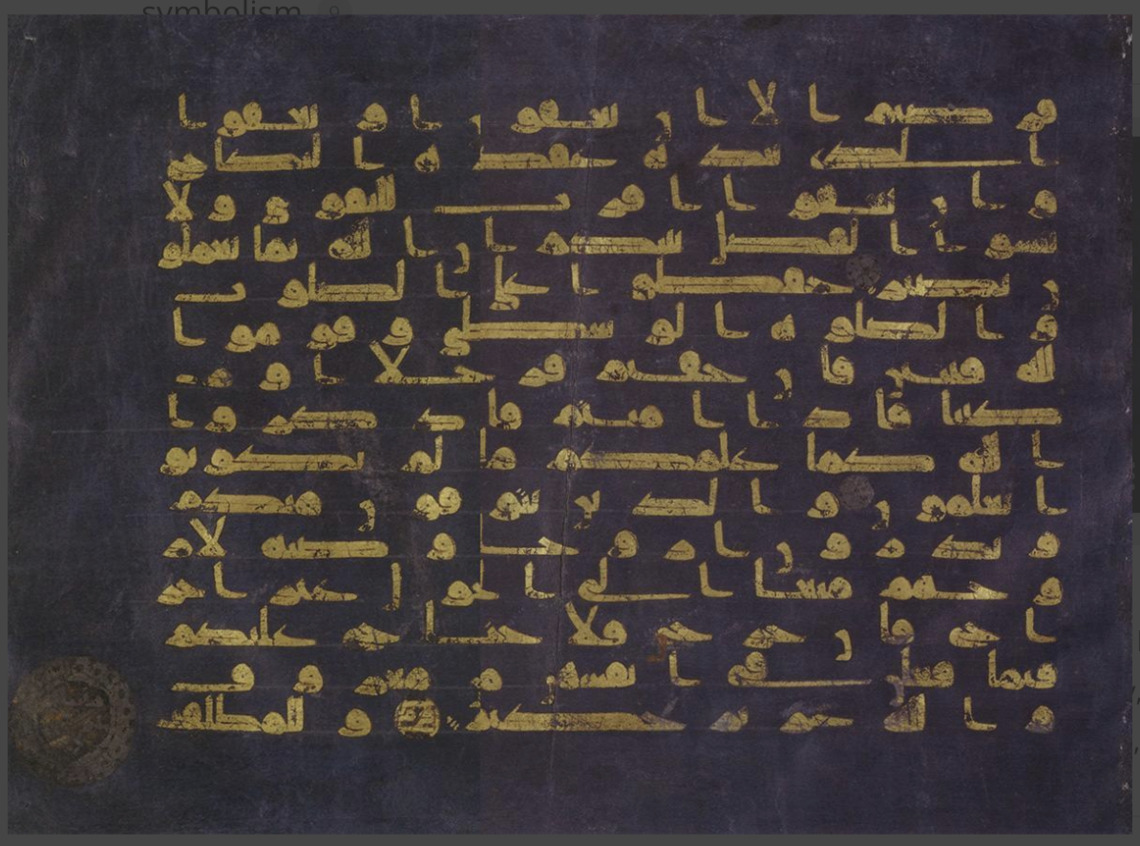 symbolism 9
فرضتم الا ان يعفون او يعفوا
الذى بيده عقدة النكاح
وان تعفوا اقرب للتقوى ولا
تنسوا الفضل بينكم ان الله بما تعملو
ن بصير حفظوا على الصلوت
والصلوة الوسطى وقوموا
لله قنتين فان خفتم فرجالا او ر
كبانا فاذا امنتم فاذكروا
الله كما علمكم ما لم تكونو
ا تعلمون والذين يتوفون منكم
ويذرون ازوجا وصية لاز
وجهم متعا الى الحول غير اخر
اج فان خرجن فلا جناح عليكم
فيما فعلن فى انفسهن من معروف
والله عزيز حكيم وللمطلقت